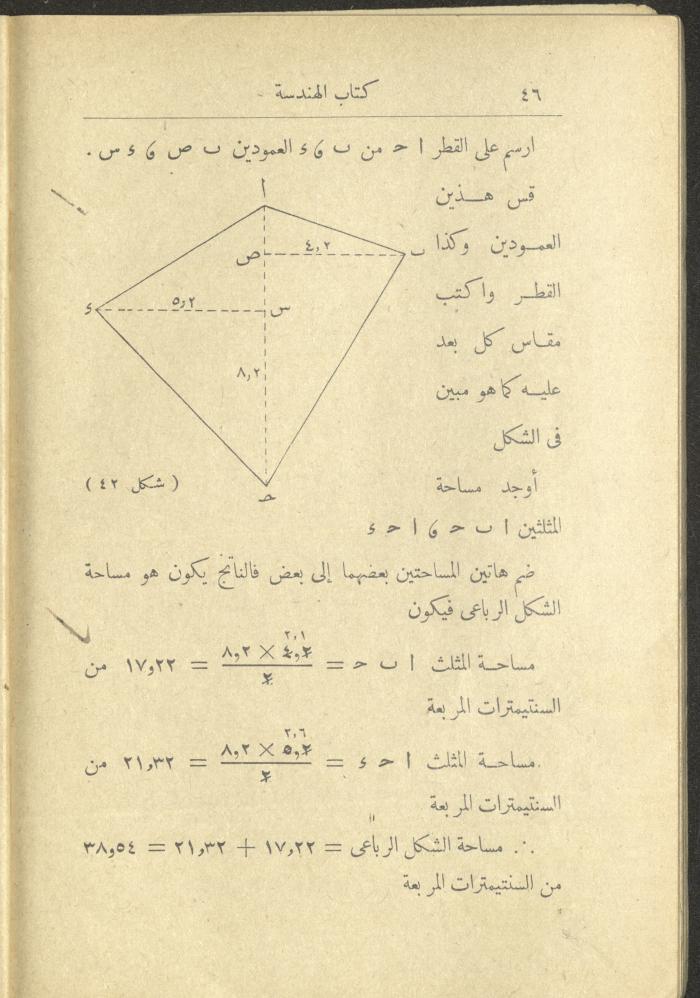 ٤٦ كتاب الهندسة
ارسم على القطر ا ح من ب و ء العمودين ب ص و ء س .
قس هـذين
العمـودين وكذا
القطـر واكتب
مقـاس كل بعد
عليـه كما هو مبين
فى الشكل
أوجد مساحة
ا
ب
٤,٢
ص
ء
٥,٢
س
٨,٢
حـ
( شكل ٤٢ )
المثلثين ا ب ح و ا ح ء
ضم هاتين المساحتين بعضهما إلى بعض فالناتج يكون هو مساحة
الشكل الرباعى فيكون
٢,١
مساحـة المثلث ا ب ح = ٤,٢ × ٨,٢ / ٢ = ١٧,٢٢ من
السنتيمترات المربعة
٢,٦
مساحـة المثلث ا ح ء = ٥,٢ × ٨,٢ / ٢ = ٢١,٣٢ من
السنتيمترات المربعة
∴ مساحة الشكل الرباعى = ١٧,٢٢ + ٢١,٣٢ = ٣٨,٥٤
من السنتيمترات المربعة